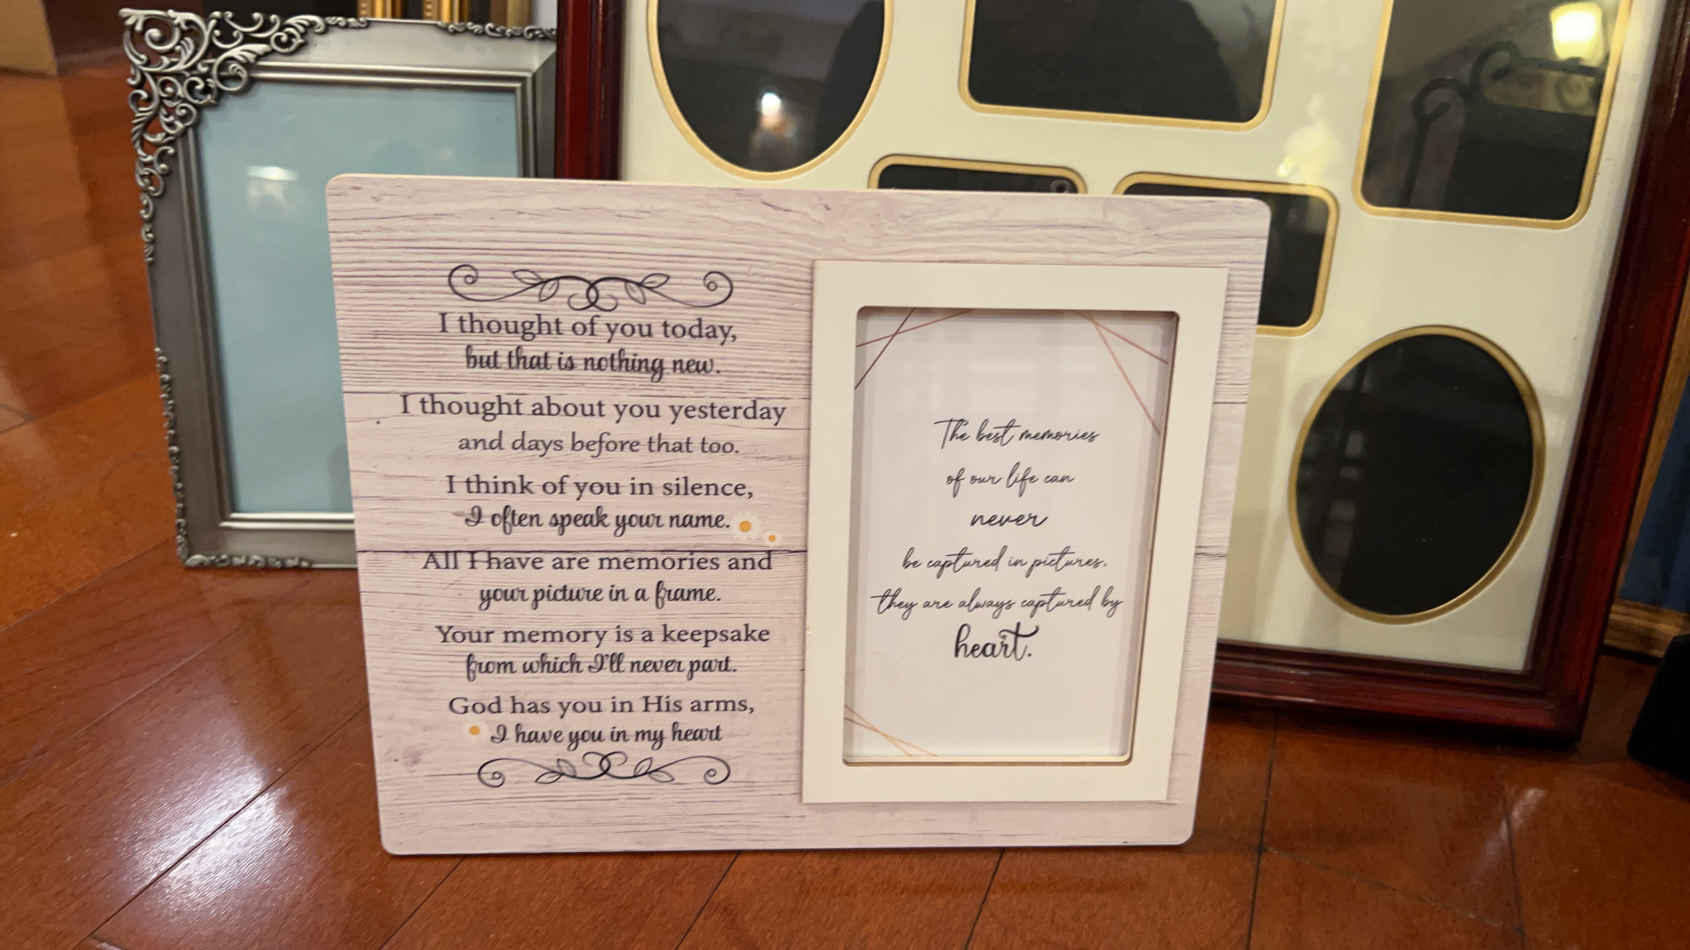 I thought of you today,
but that is nothing new.
I thought about you yesterday
and days before that too.
I think of you in silence,
I often speak your name.
All I have are memories and
your picture in a frame.
Your memory is a keepsake
from which I'll never part.
God has you in His arms,
I have you in my heart
The best memories
of our life can
never
be captured in pictures,
they are always captured by
heart.